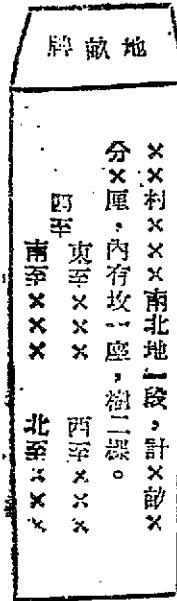 地畝牌
××村×××南北地一段，計×畝×
分×厘，內有坟一座，樹二棵。
四至
東至××× 西至×××
南至××× 北至×××